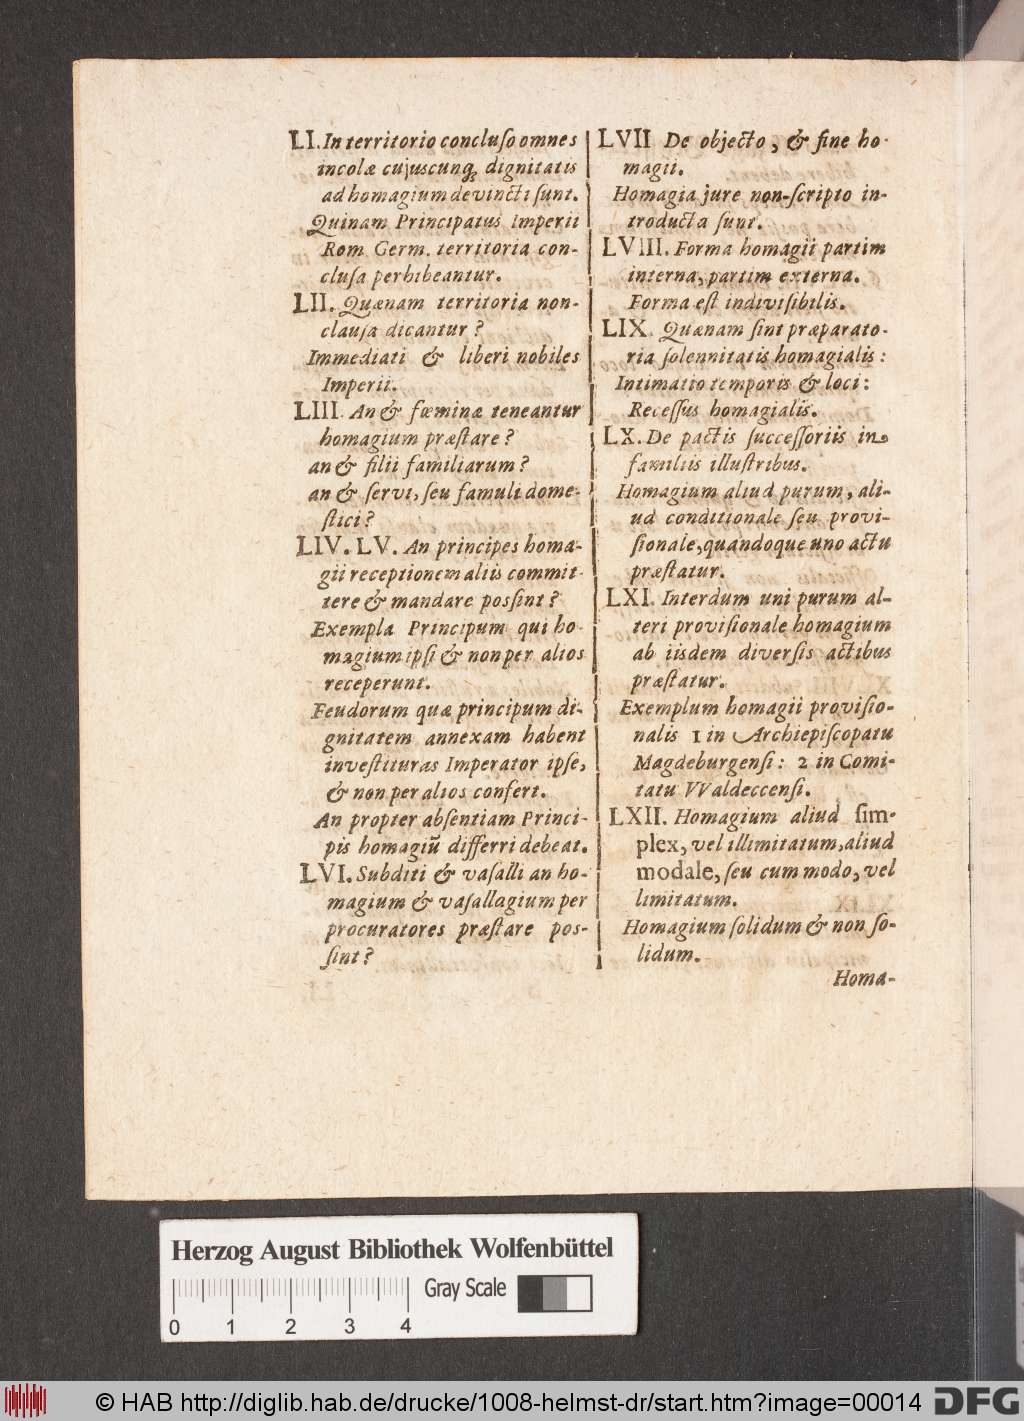 LI. In territorio concluso omnes
incolæ cujuscunq; dignitatis
ad homagium devincti sunt.
Quinam Principatus Imperii
Rom Germ. territoria con-
clusa perhibeantur.
LII. Quænam territoria non-
clausa dicantur?
Immediati & liberi nobiles
Imperii.
LIII. An & fœminæ teneantur
homagium præstare?
an & filii familiarum?
an & servi, seu famuli dome-
stici?
LIV. LV. An principes homa-
gii receptionem aliis commit-
tere & mandare possint?
Exempla Principum qui ho
magium ipsi & non per alios
receperunt.
Feudorum quæ principum di-
gnitatem annexam habent
investituras Imperator ipse,
& non per alios confert.
An propter absentiam Princi-
pis homagiũ differri debeat.
LVI. Subditi & vasalli an ho-
magium & vasallagium per
procuratores præstare pos-
sint?
LVII De objecto, & fine ho-
magii.
Homagia jure non-scripto in-
troducta sunt.
LVIII. Forma homagii partim
interna, partim externa.
Forma est indivisibilis.
LIX. Quænam sint præparato-
ria solennitatis homagialis:
Intimatio temporis & loci:
Recessus homagialis.
LX. De pactis successoriis in
familiis illustribus.
Homagium aliud purum, ali-
ud conditionale seu provi-
sionale, quandoque uno actu
præstatur.
LXI. Interdum uni purum al-
teri provisionale homagium
ab iisdem diversis actibus
præstatur.
Exemplum homagii provisio-
nalis 1 in Archiepiscopatu
Magdeburgensi: 2 in Comi-
tatu VValdeccensi.
LXII. Homagium aliud sim-
plex, vel illimitatum, aliud
modale, seu cum modo, vel
limitatum.
Homagium solidum & non so-
lidum.
Homa-
Herzog August Bibliothek Wolfenbüttel
Gray Scale
0 1 2 3 4
© HAB http://diglib.hab.de/drucke/1008-helmst-dr/start.htm?image=00014
DFG